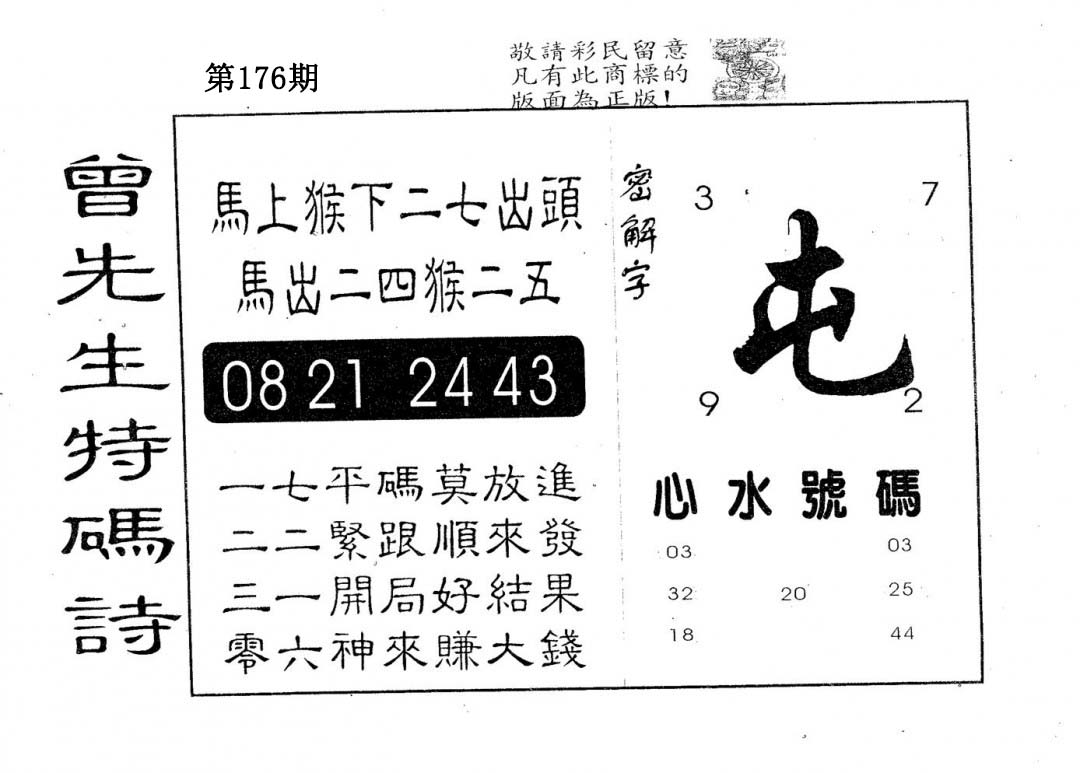 敬請彩民留意
凡有此商標的
版面為正版!
第176期
曾先生特碼詩
馬上猴下二七出頭
馬出二四猴二五
08 21 24 43
一七平碼莫放進
二二緊跟順來發
三一開局好結果
零六神來賺大錢
密解字
3 7
屯
9 2
心水號碼
03 03
32 20 25
18 44